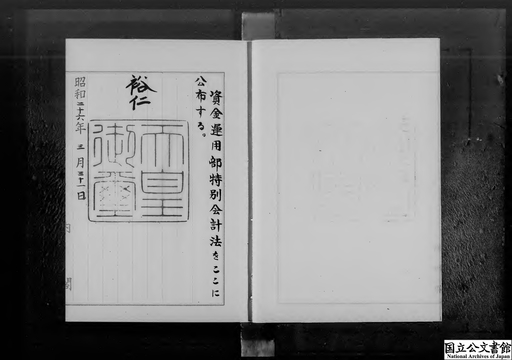 資金運用部特別会計法をここに
公布する。
裕仁
天皇
御璽
昭和二十六年三月三十一日
内閣
国立公文書館
National Archives of Japan